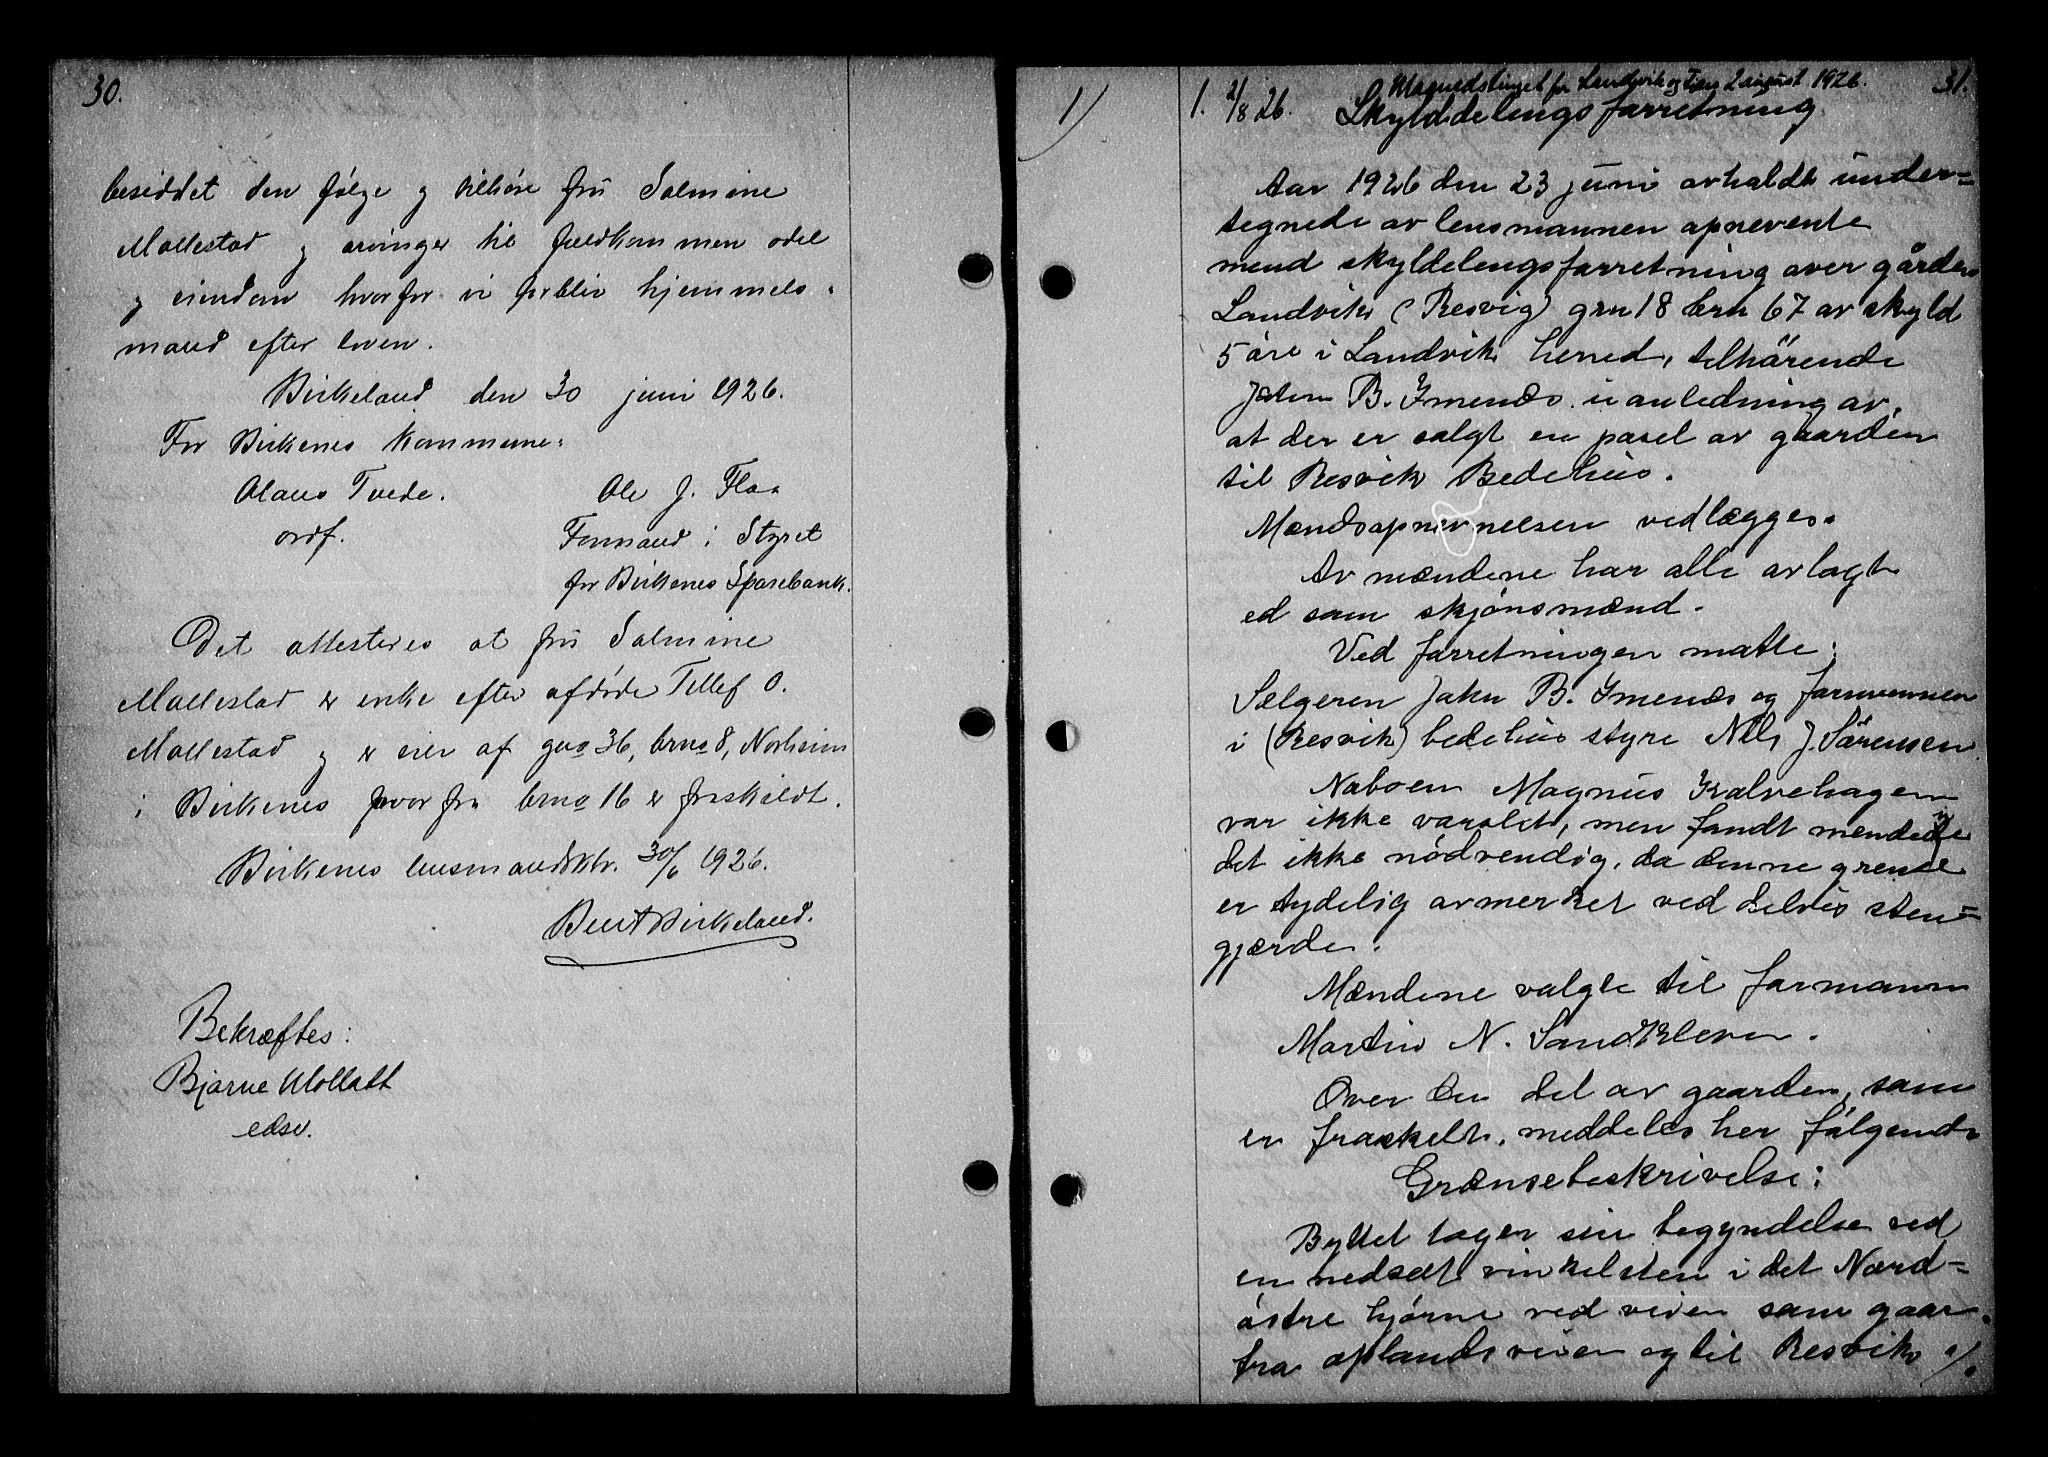 30.
besiddet den følge og tilhøre fru Salmine
Mollestad og arvinger til fuldkommen odel
og eiendom hvorfor vi forbliv hjemmels-
mand efter loven.
Birkeland den 30 juni 1926.
For Birkenes Kommune:
Olaus Tvede.
ordf.
Ole J. Flaa
Formand i Styret
for Birkenes Sparebank.
Det attesteres at fru Salmine
Mollestad er enke efter afdøde Tellef O.
Mollestad og er eier af gno 36, brno 8, Norheim
i Birkenes hvor fra brno 16 er fraskildt.
Birkenes lensmandsktr. 30/6 1926.
Bent Birkeland.
Bekræftes:
Bjarne Mollatt
edsv.
1)
1. 2/8 26.
Maanedstinget for Landvik og Eide 2 august 1926.
31.
Skylddelingsforretning
Aar 1926 den 23 juni avholdt under-
tegnede av lensmannen opnevente
mend skyldelengsforretning over gården
Landvik (Resvig) grn 18 brn 67 av skyld
5 øre i Landvik herred, tilhørende
John B. Ymenæs i anledning av,
at der er solgt en pasel av gaarden
til Resvik Bedehus.
Mændsopnevnelsen vedlægges.
Av mændene har alle avlagt
ed som skjønsmænd.
Ved forretningen møtte:
Selgeren John B. Ymenæs og formennen
i (Resvik) bedehus styre Nils J. Sørensen
Naboen Magnus Kalvehagen
var ikke varslet, men fandt mendene
det ikke nødvendig, da denne grense
er tydelig avmerket ved delvis sten-
gjærde.
Mændene valgte til formann
Martin N. Sandkleven.
Over den del av gaarden, som
er fraskelt, meddeles her følgende
Grænsebeskrivelse:
Byttet tager sin begyndelse ved
en nedsat vinkelsten i det Nord-
østre hjørne ved veien som gaar
fra oplandsveien og til Resvik